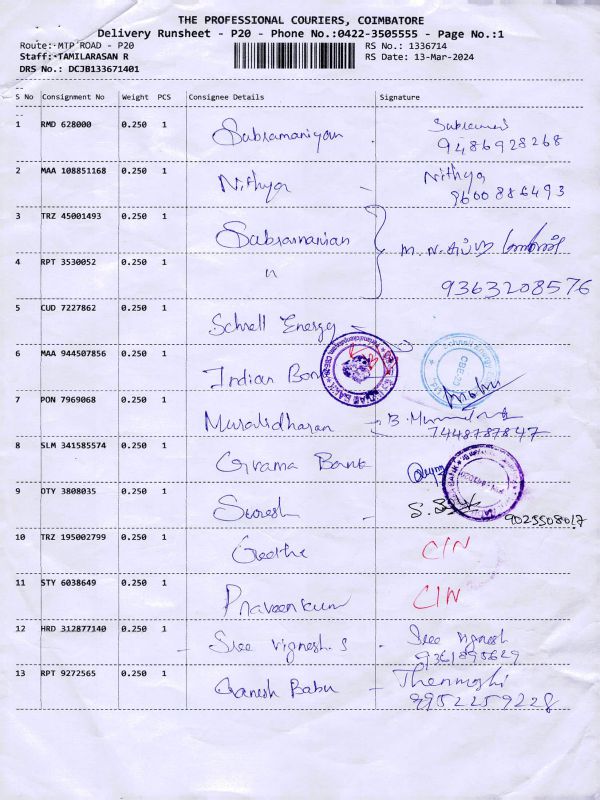 THE PROFESSIONAL COURIERS, COIMBATORE
Delivery Runsheet - P20 - Phone No.:0422-3505555 - Page No.:1
Route: MTP ROAD - P20 RS No.: 1336714
Staff: TAMILARASAN R RS Date: 13-Mar-2024
DRS No.: DCJB133671401
S No Consignment No Weight PCS Consignee Details Signature
1 RMD 628000 0.250 1 Subramaniyan
9486928268
2 MAA 108851168 0.250 1 Nithya - Nithya
9600886493
3 TRZ 45001493 0.250 1 Subramanian M. N.
4 RPT 3530052 0.250 1 " 9363208576
5 CUD 7227862 0.250 1 Schnell Energy
6 MAA 944507856 0.250 1 Indian Bank
7 PON 7969068 0.250 1 Muralidharan - B.
7448787847
8 SLM 341585574 0.250 1 Grama Bank
9 OTY 3808035 0.250 1 Suresh - 9025508017
10 TRZ 195002799 0.250 1 Geetha C/N
11 STY 6038649 0.250 1 Praveenkum C/N
12 HRD 312877140 0.250 1 - Sree Vignesh. S - Sree Vignesh
9361895629
13 RPT 9272565 0.250 1 Ganesh Babu - Thenmozhi
9952259228